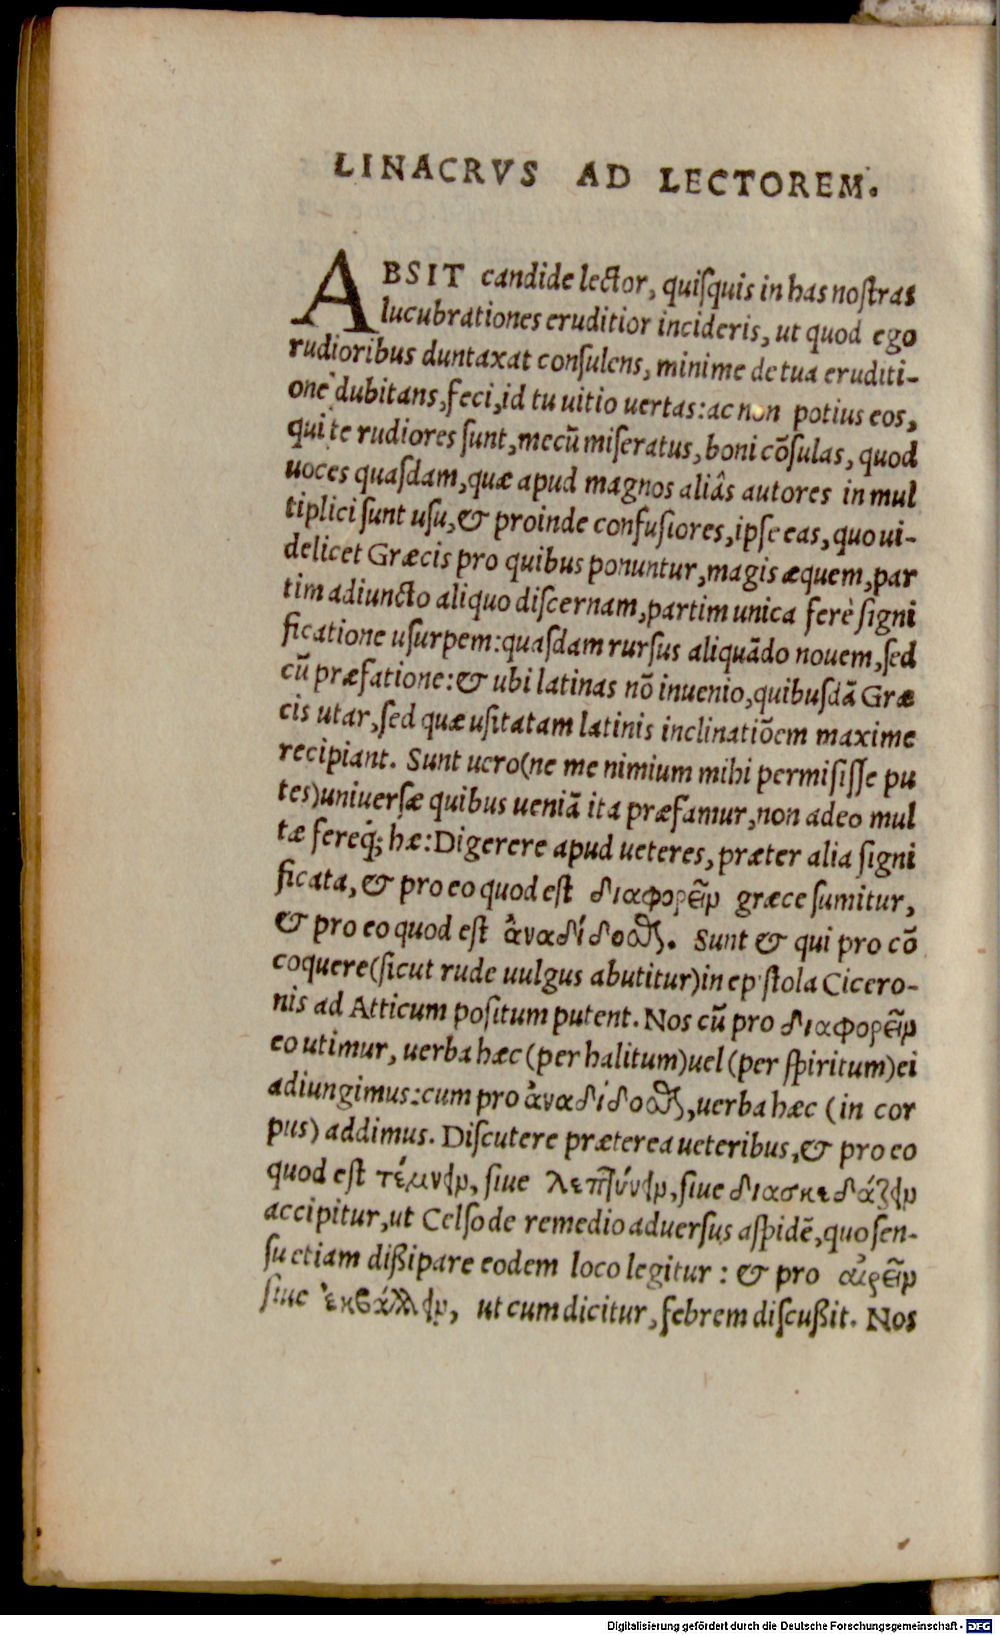 LINACRVS AD LECTOREM.
ABSIT candide lector, quiſquis in has noſtras
lucubrationes eruditior incideris, ut quod ego
rudioribus duntaxat conſulens, minime de tua eruditi-
one dubitans, feci, id tu uitio uertas: ac non potius eos,
qui te rudiores ſunt, mecũ miſeratus, boni cõſulas, quod
uoces quaſdam, quæ apud magnos aliâs autores in mul
tiplici ſunt uſu, & proinde confuſiores, ipſe eas, quo ui-
delicet Græcis pro quibus ponuntur, magis æquem, par
tim adiuncto aliquo diſcernam, partim unica ferè ſigni
ficatione uſurpem: quaſdam rurſus aliquãdo nouem, ſed
cũ præfatione: & ubi latinas nõ inuenio, quibuſdã Græ
cis utar, ſed quæ uſitatam latinis inclinatiõem maxime
recipiant. Sunt uero (ne me nimium mihi permiſiſſe pu
tes) uniuerſæ quibus ueniã ita præfamur, non adeo mul
tæ fereq́; hæ: Digerere apud ueteres, præter alia ſigni
ficata, & pro eo quod eſt διαφορεῖν græce ſumitur,
& pro eo quod eſt ἀναδίδοσθαι. Sunt & qui pro cõ
coquere (ſicut rude uulgus abutitur) in epiſtola Cicero-
nis ad Atticum poſitum putent. Nos cũ pro διαφορεῖν
eo utimur, uerba hæc (per halitum) uel (per ſpiritum) ei
adiungimus: cum pro ἀναδίδοσθαι, uerba hæc (in cor
pus) addimus. Diſcutere præterea ueteribus, & pro eo
quod eſt τέμνειν, ſiue λεπτύνειν, ſiue διασκεδάζειν
accipitur, ut Celſo de remedio aduerſus aſpidẽ, quo ſen-
ſu etiam diſſipare eodem loco legitur: & pro αἰρεῖν
ſiue ἐκβάλλειν, ut cum dicitur, febrem diſcuſſit. Nos
Digitalisierung gefördert durch die Deutsche Forschungsgemeinschaft - DFG